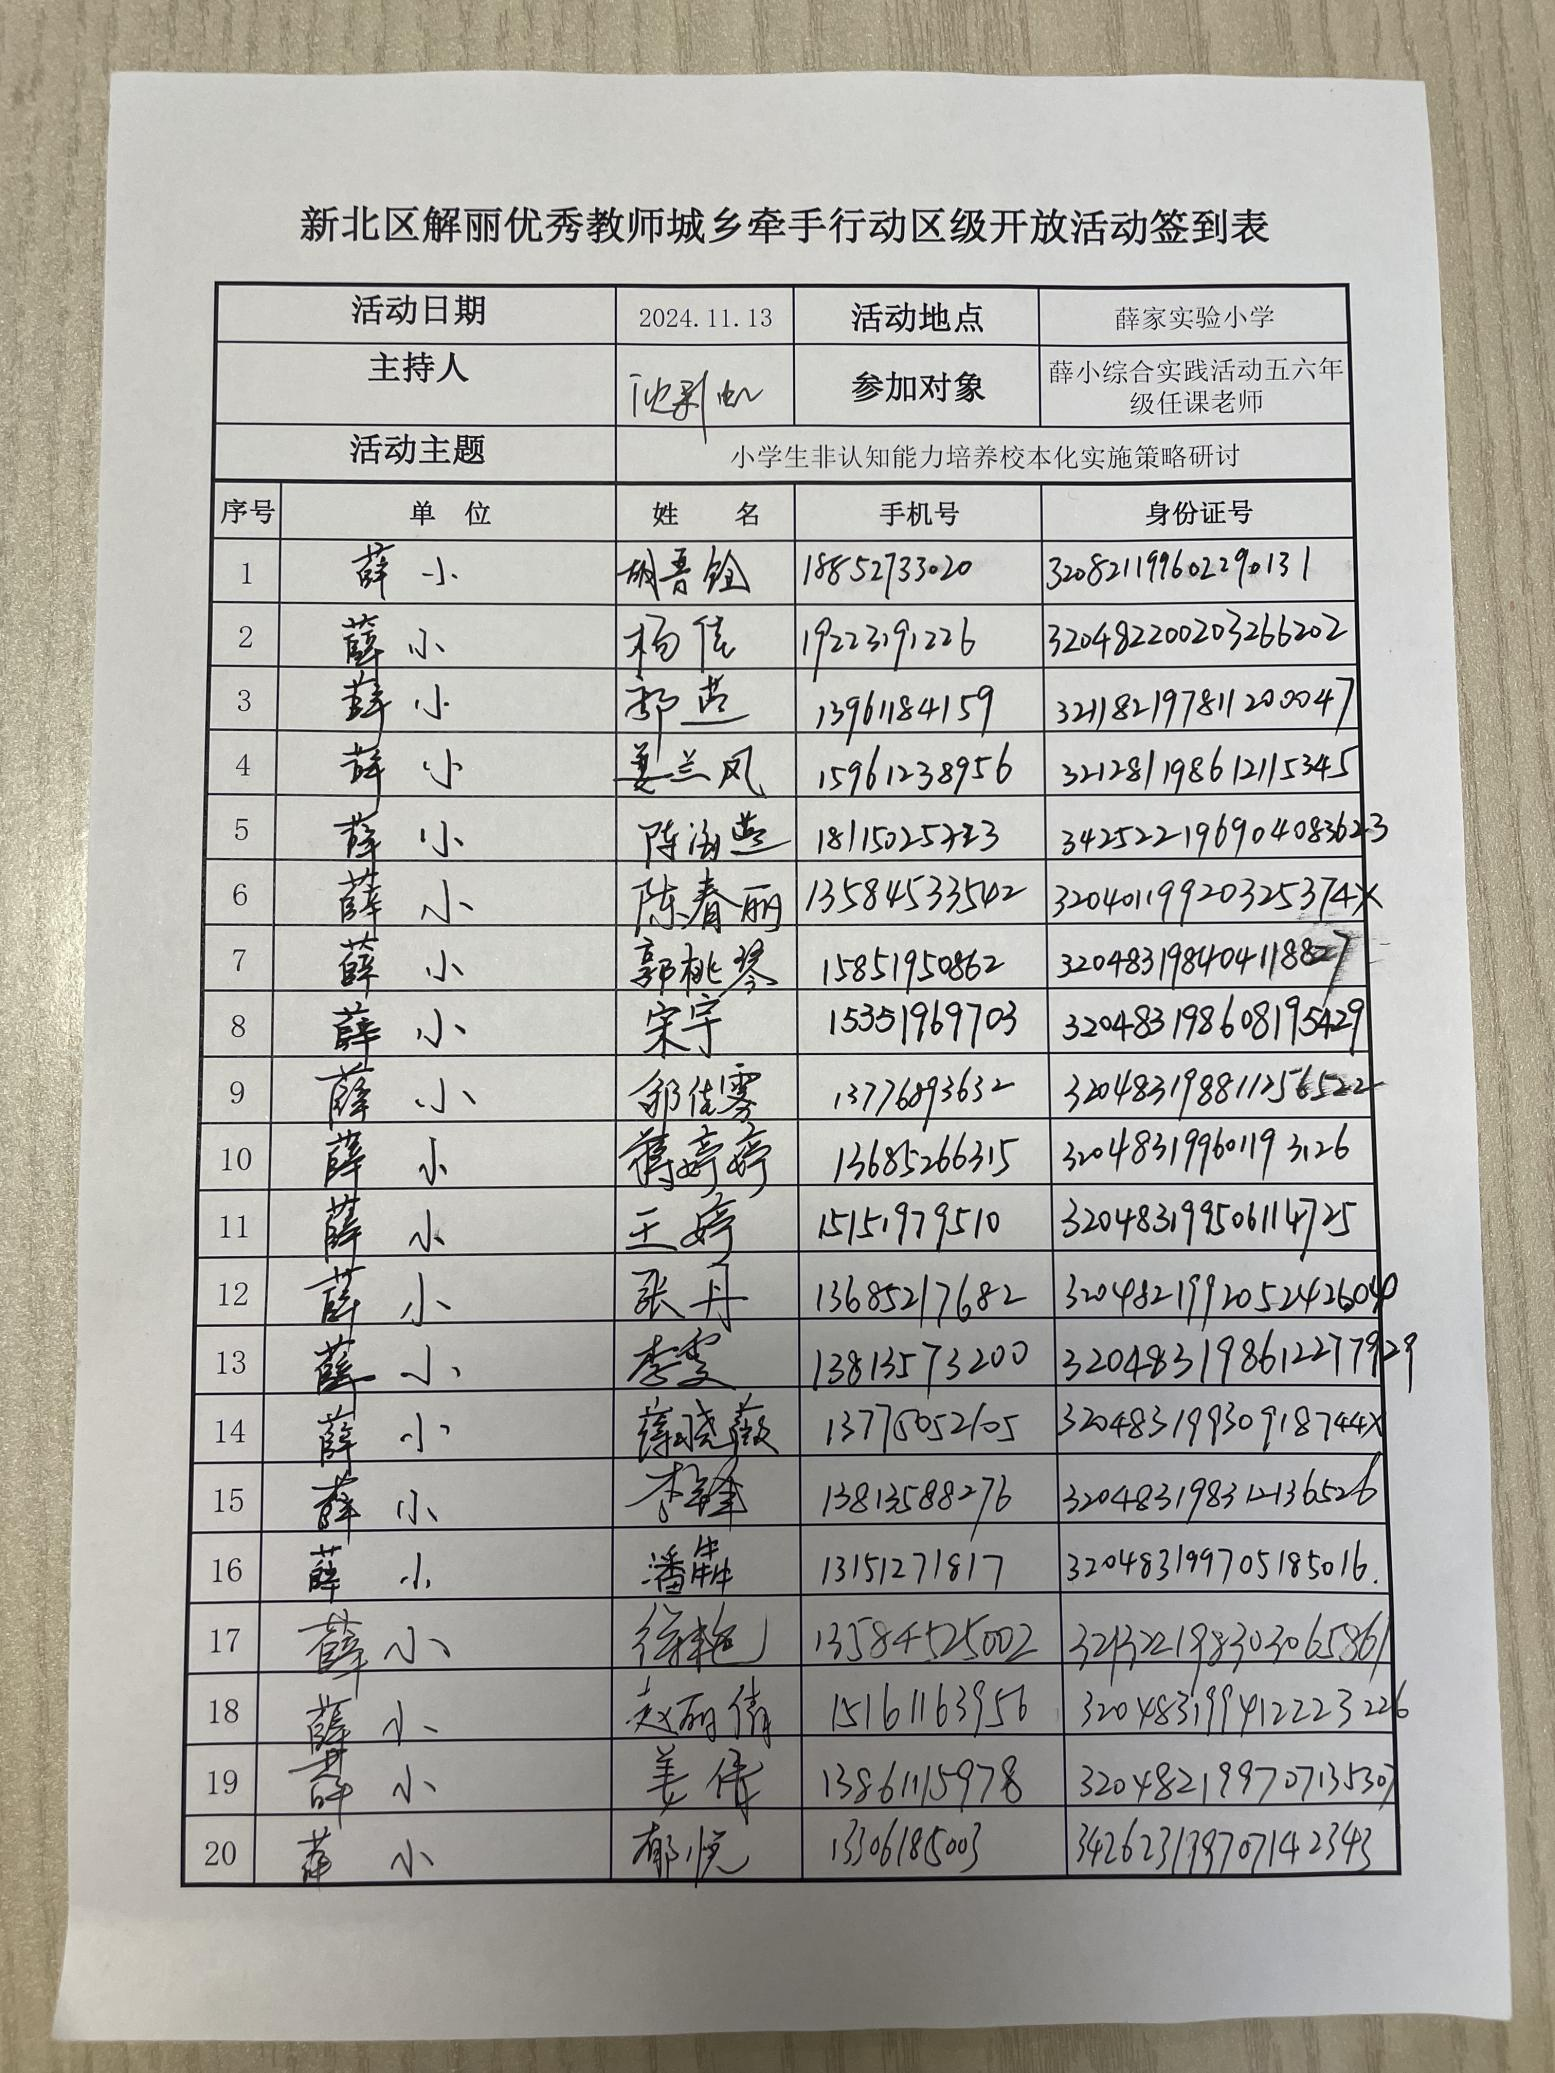 新北区解丽优秀教师城乡牵手行动区级开放活动签到表
活动日期 2024.11.13 活动地点 薛家实验小学
主持人 参加对象 薛小综合实践活动五六年
级任课老师
活动主题 小学生非认知能力培养校本化实施策略研讨
序号 单 位 姓 名 手机号 身份证号
1 薛小 18852733020 320821199602290131
2 薛小 杨佳 19223191226 320482200203266202
3 薛小 13961184159 321182197811200047
4 薛小 姜兰凤 15961238956 321281198612115345
5 薛小
6 薛小 陈春丽 13584533542 32040119920325374X
7 薛小 郭桃琴 15851950862 320483198404118827
8 薛小 宋宇 15351969703 320483198608195429
9 薛小 13776893632 320483198811256522
10 薛小 蒋婷婷 13685266315 320483199601193126
11 薛小 王婷 15151979510 320483199506114725
12 薛小 张丹 13685217682
13 薛小 李雯 13813573200 320483198612277929
14 薛小 薛晓薇 32048319930918744X
15 薛小 李锋 13813588276 320483198312136526
16 薛小 潘犇 13151271817 320483199705185016.
17 薛小 徐艳 13584525002 321322198303065861
18 薛小 赵丽倩 15161163956 320483199412223226
19 薛小 姜伟 13861115978 320482199707135307
20 薛小 郁悦 13306185003 342623199707142343